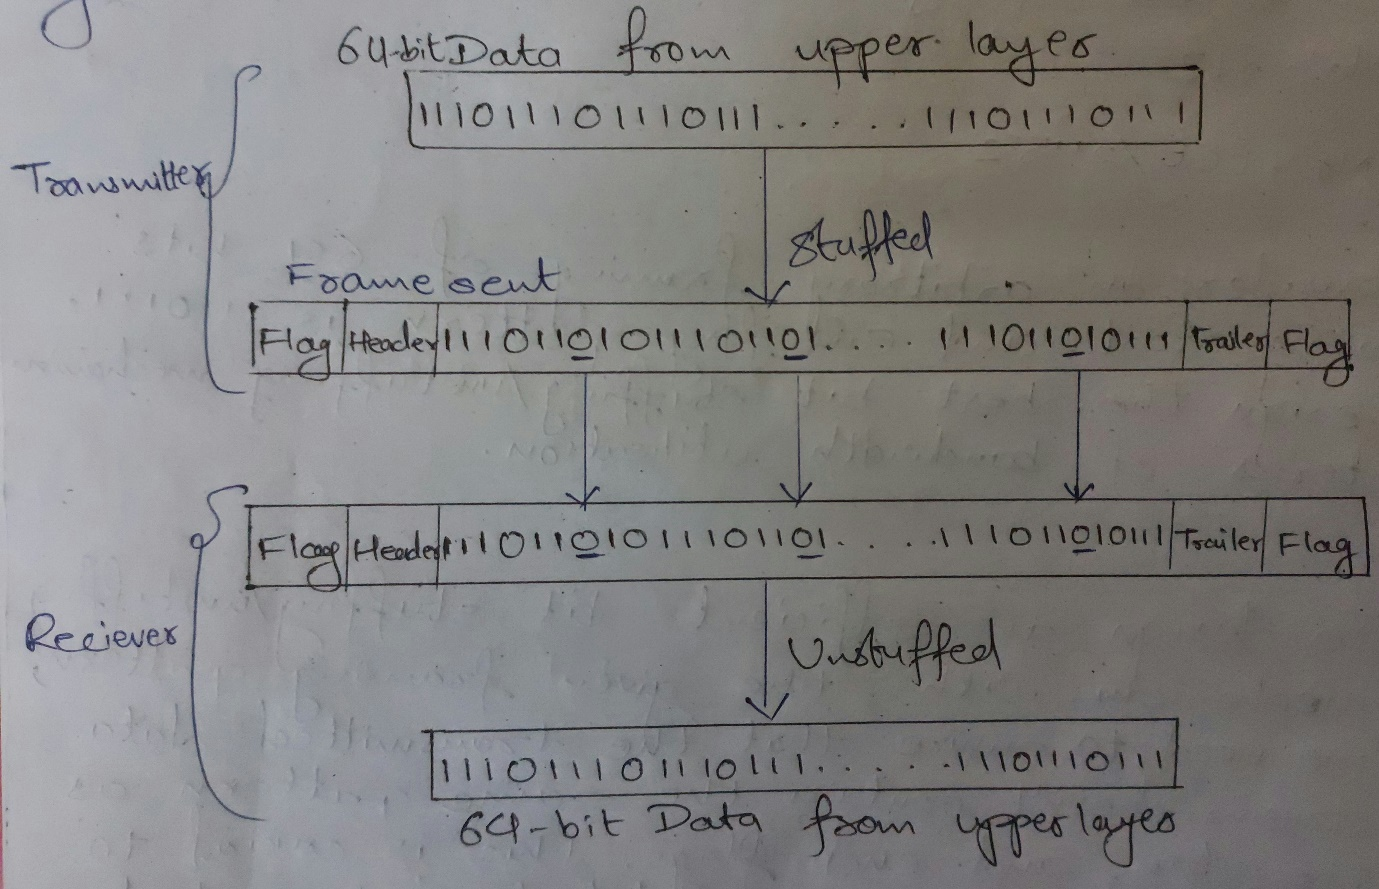 64-bit Data from upper layer.
111011101110111. . . . . .11101110111
Transmitter
Stuffed
Frame sent
Flag Header 11101101011101101. . . . 111011010111 Trailer Flag
Flag Header 11101101011101101. . . . 111011010111 Trailer Flag
Reciever
Unstuffed
111011101110111. . . . . .11101110111
64-bit Data from upper layer